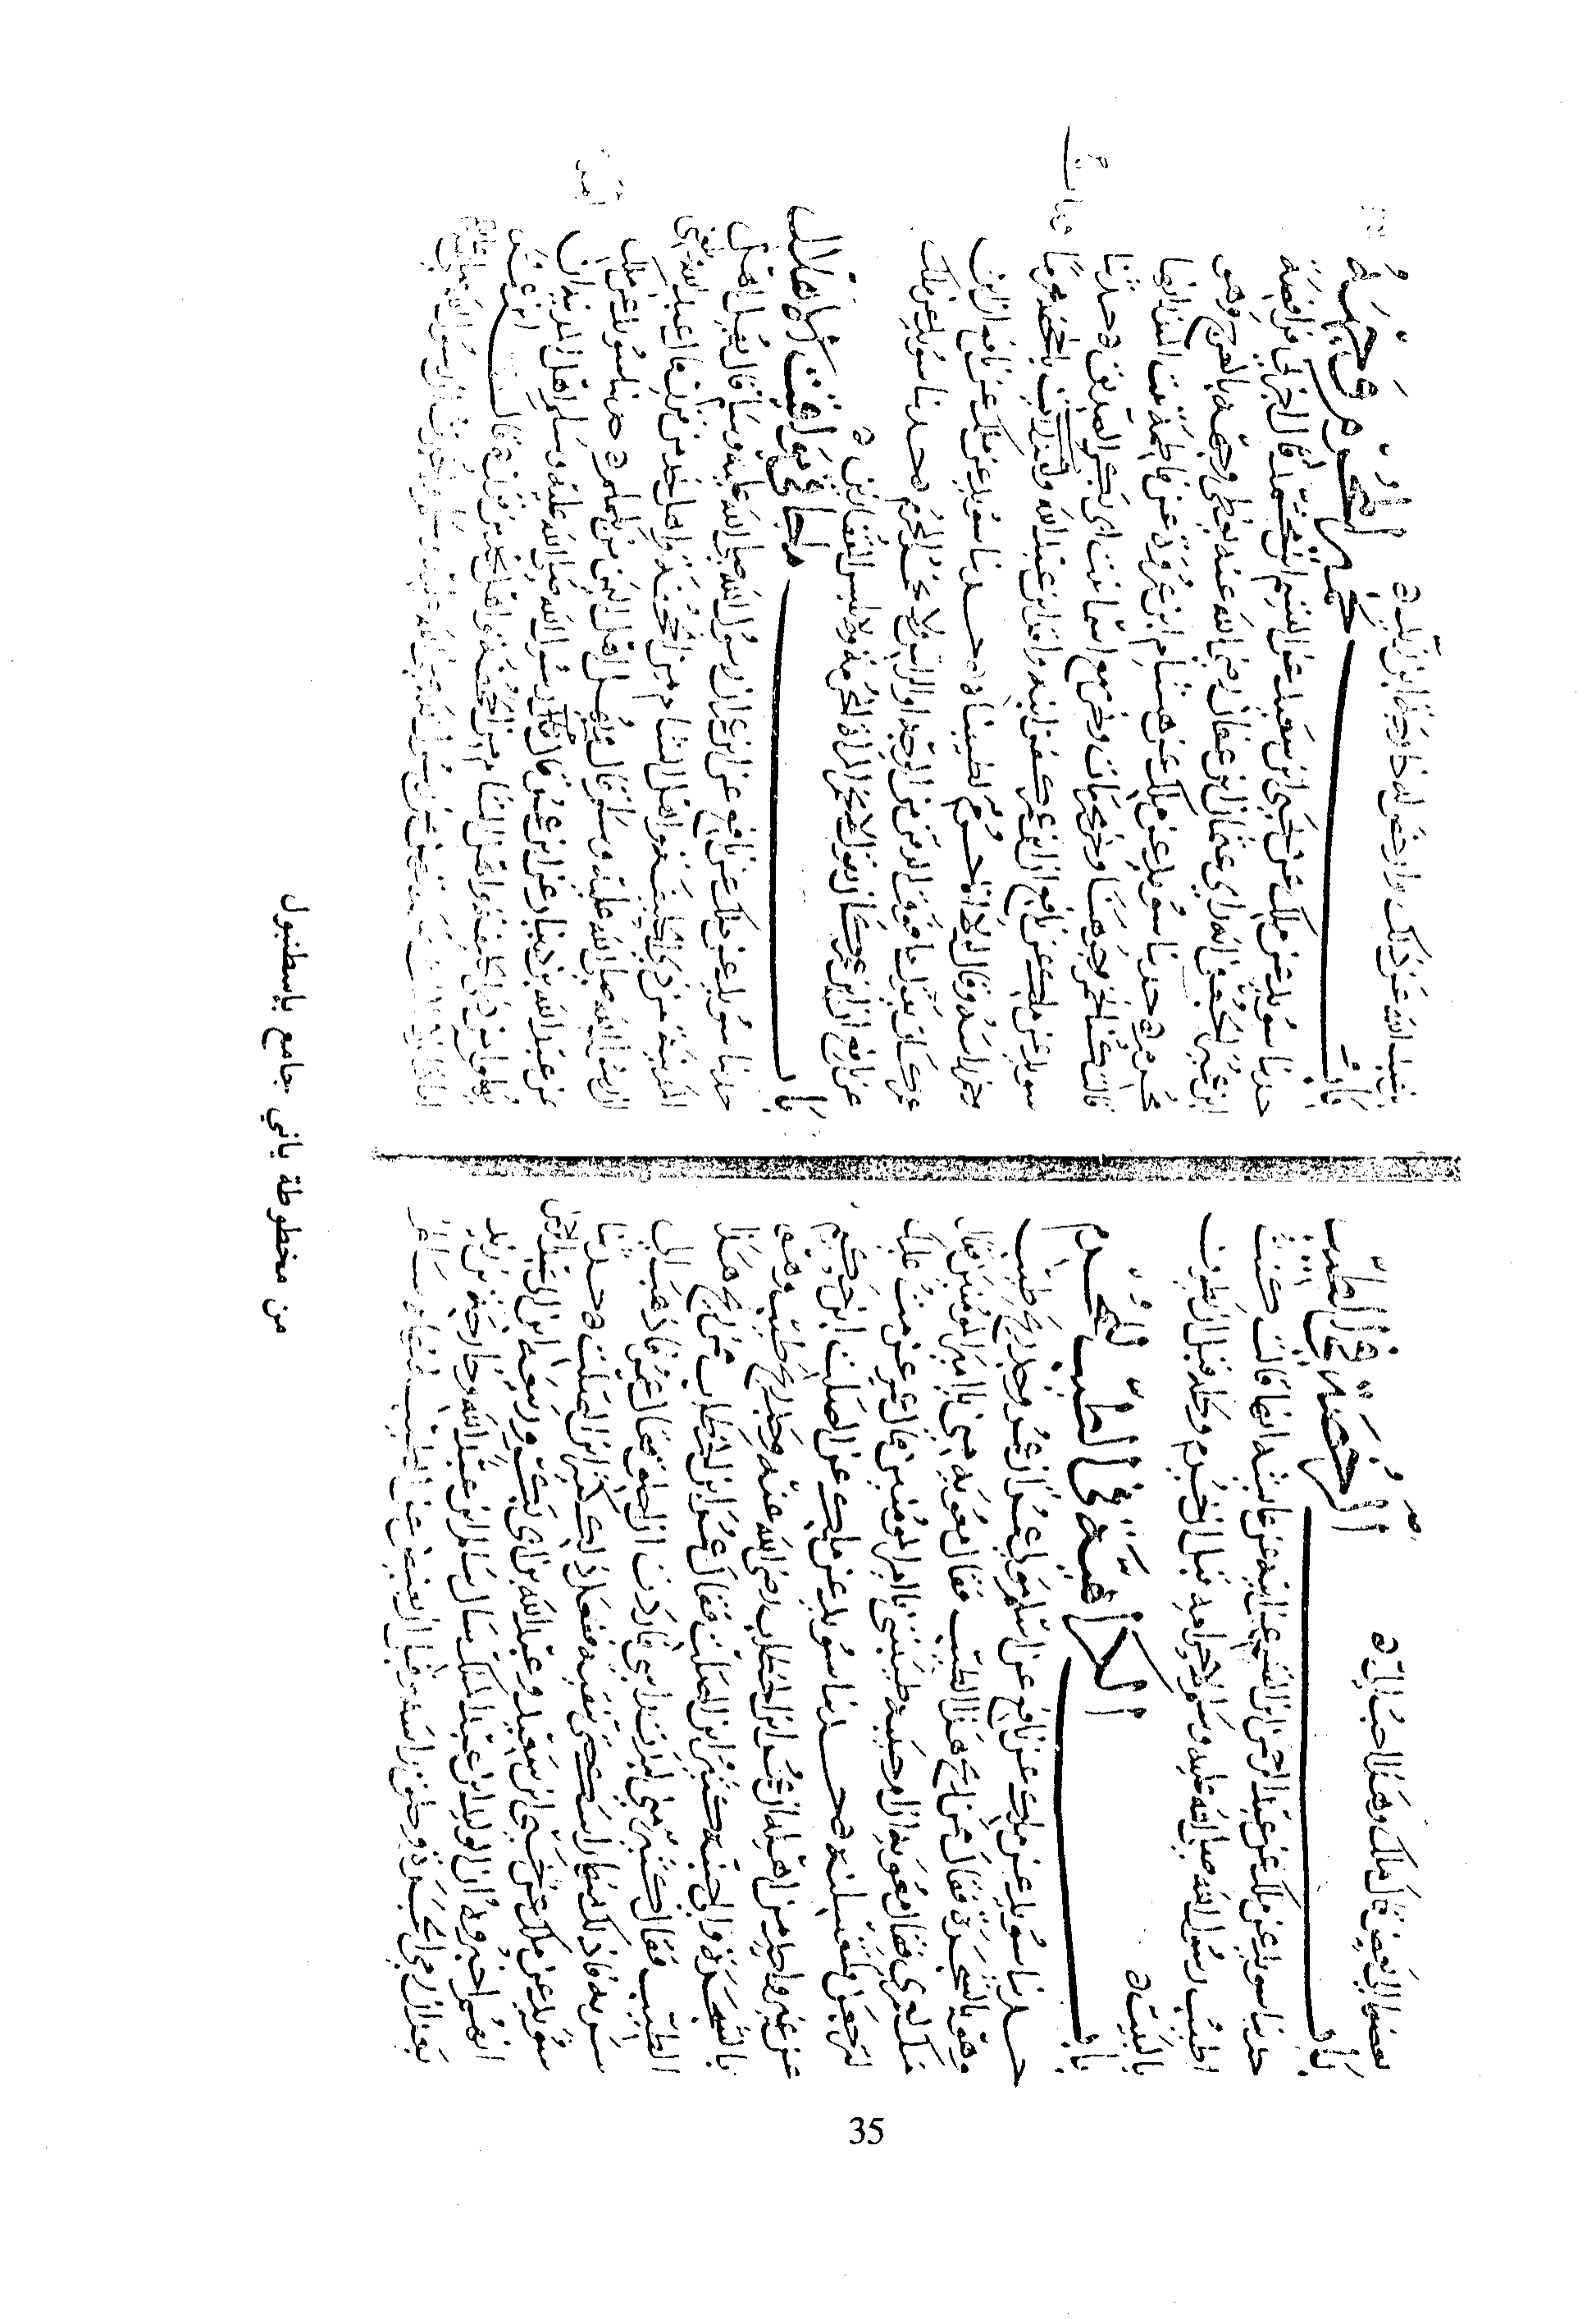 بعضها الى بعض قال ملك وهذا احب الي ه
باب الرخصة في الطيب
حدثنا سويد عن ملك عن عبد الرحمن ابن القسم عن ابيه عن عائشة انها قالت كنت
اطيب رسول الله صلى الله عليه وسلم لاحرامه قبل ان يحرم ولحله قبل ان يطوف
بالبيت ه
باب الكراهية في الطيب للمحرم
حدثنا سويد عن ملك عن نافع عن اسلم مولى عمر ان عمر وجد ريح طيب
وهو بالشجرة فقال ممن ريح هذا الطيب فقال معوية مني يا امير المومنين فقال
منك لعمري فقال معوية ان ام حبيبة طيبتني يا امير المومنين قال عمر عزمت عليك
لترجعن فلتغسلنه ه حدثنا سويد عن ملك عن الصلت ابن
عن غير واحد من اهله ان عمر ابن الخطاب رضي الله عنه وجد ريح طيب وهو
بالشجرة والى جنبه كثير ابن الصلت فقال عمر ابن الخطاب ممن ريح هذا
الطيب فقال كثير مني لبدت راسي فاردت ان احلق فقال عمر فاذهب الى
شربة فادلك منها راسك حتى تنقيه ففعل ذلك كثير ابن الصلت ه حدثنا
سويد عن ملك عن يحيى ابن سعيد وعبد الله بن ابي بكر وربيعة ابن ابي عبد الرحمن
انهم اخبروه ان الوليد ابن عبد الملك سال سالم ابن عبد الله وخارجة بن زيد
بعد ان رمى الجمرة وحلق راسه وقبل ان يفيض عن الطيب فنهاه سالم
عبد الله عن ذلك وارخص له خارجة ابن زيد ه
باب المحرم وجهه
حدثنا سويد عن ملك عن يحيى ابن سعيد عن القسم ابن محمد قال اخبرني فرافصة
ابن عمير الحنفي انه راى عثمان ابن عفان رضي الله عنه يغطي وجهه بالعرج وهو
محرم ه حدثنا سويد عن ملك عن هشام ابن عروة عن فاطمة بنت المنذر انها
قالت كنا نخمر وجوهنا ونحن محرمات ونحن مع اسما بنت ابي بكر الصديق ه حدثنا
سويد عن ملك عن نافع ان ابن عمر كفن ابنه واقد ابن عبد الله بالجحفة محرما
وخمر راسه وقال لولا انا حرم لطيبناه ه حدثنا سويد عن ملك عن نافع ان ابن
عمر كان يقول ما فوق الذقن من الوجه والراس ولا يخمره المحرم ه حدثنا سويد عن ملك
عن نافع ان ابن عمر كان يقول لا تخمر المراة المحرمة ولا تلبس القفازين ه
باب ما جا في مواقيت الاهلال
حدثنا سويد عن ملك عن نافع عن ابن عمر ان رسول الله صلى الله عليه وسلم قال يهل اهل
المدينة من ذي الحليفة واهل الشام من الجحفة واهل نجد من قرن قال عبد الله بلغني
ان رسول الله صلى الله عليه وسلم قال يهل اهل اليمن من يلملم ه حدثنا سويد عن ملك
عن عبد الله بن دينار عن ابن عمر قال رسول الله صلى الله عليه وسلم اهل المدينة ان
يهلوا من ذي الحليفة واهل الشام من الجحفة واهل نجد من قرن قال ابن عمر
من مخطوطة ياني جامع باسطنبول
35